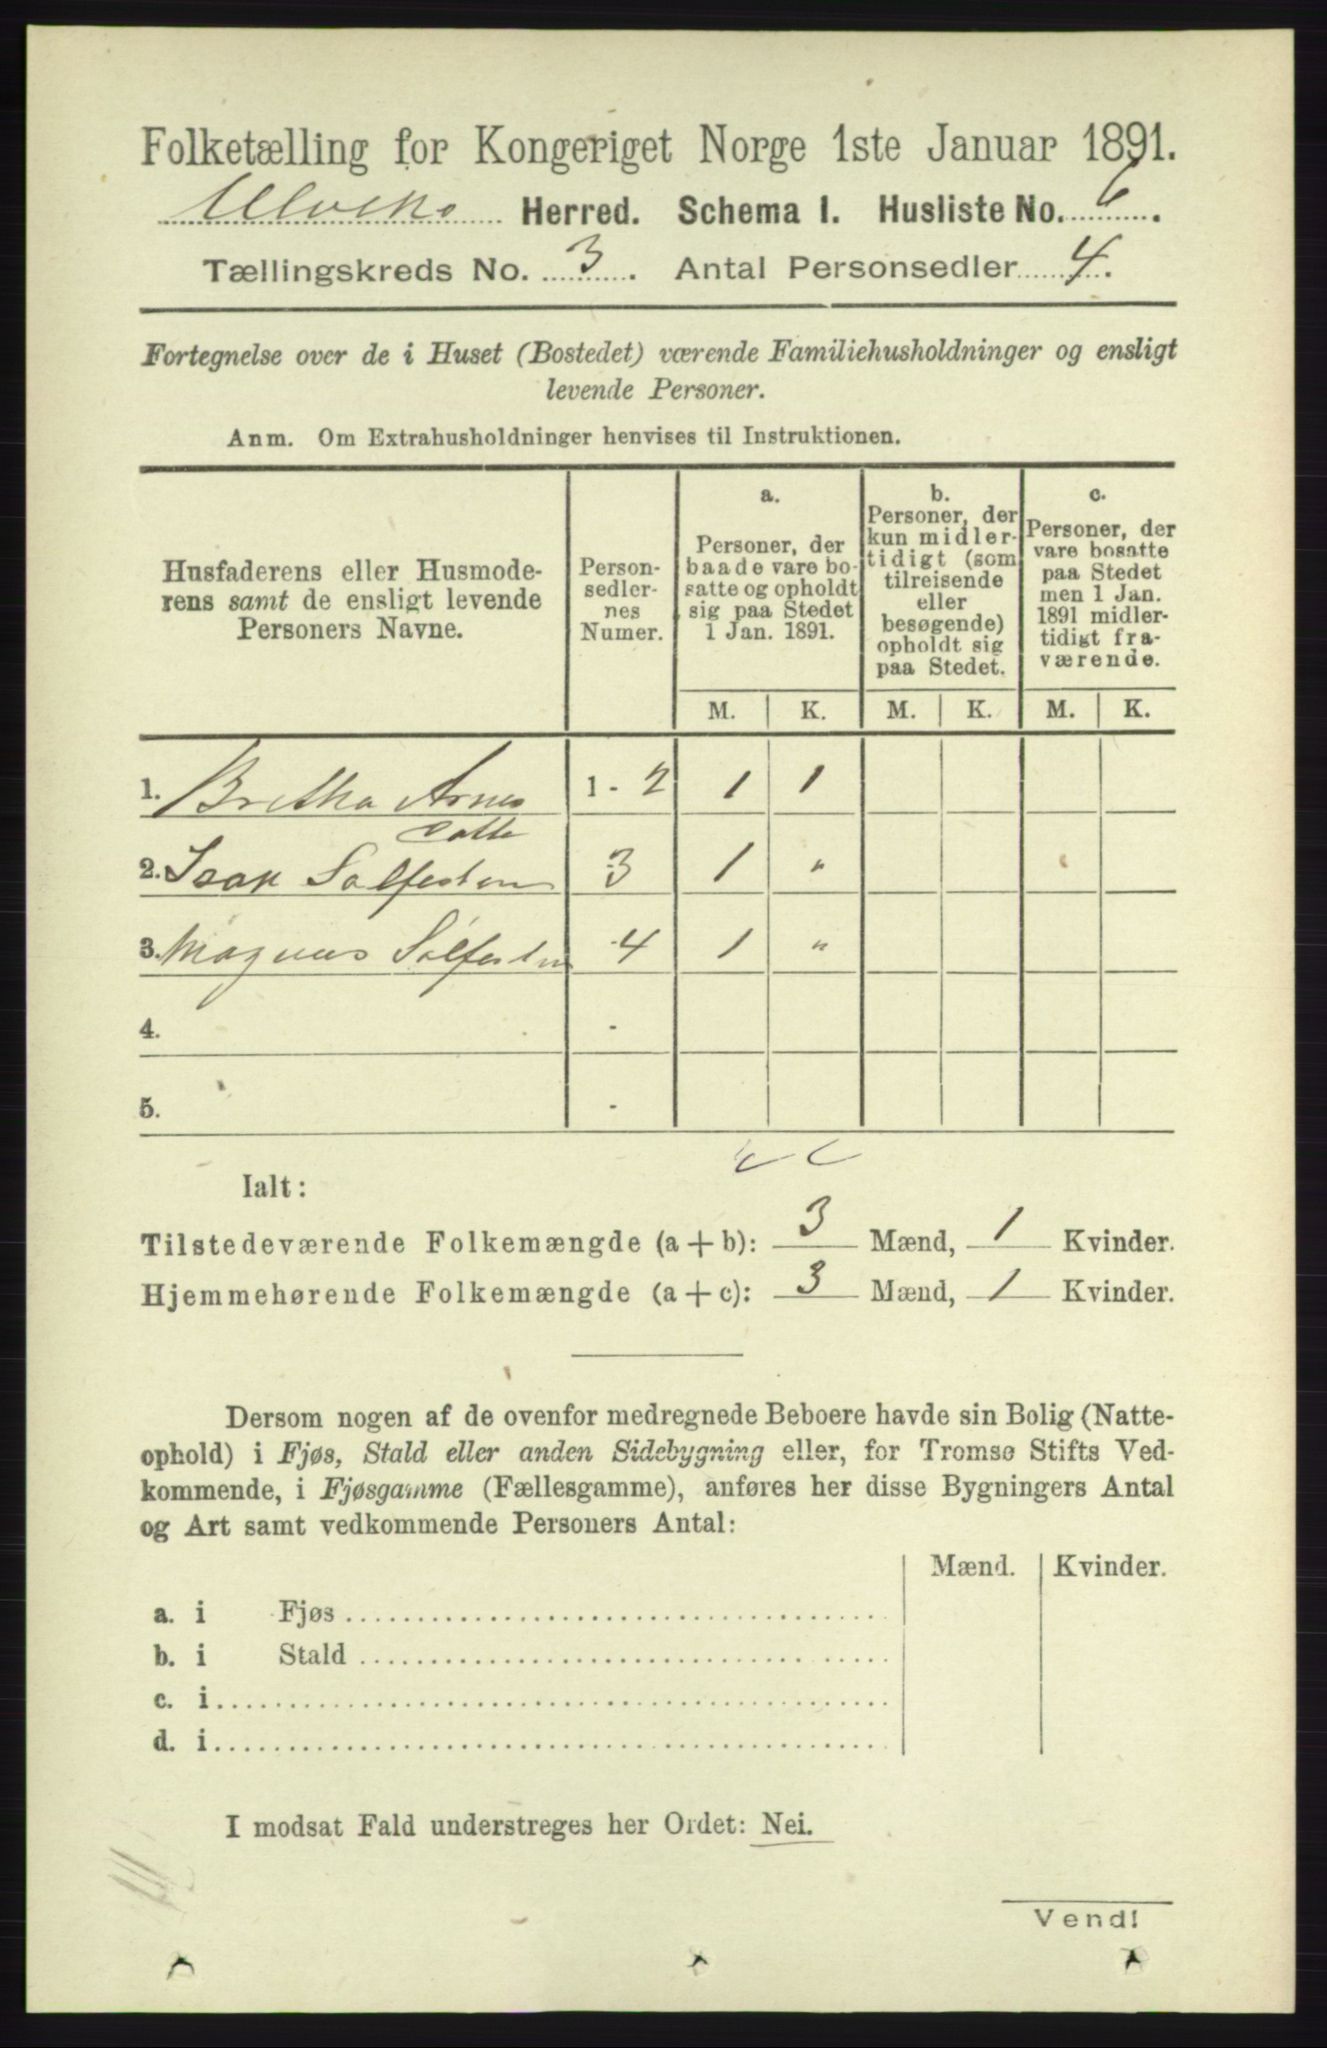 Folketælling for Kongeriget Norge 1ste Januar 1891.
Ulviks Herred. Schema I. Husliste No. 6.
Tællingskreds No. 3. Antal Personsedler 4.
Fortegnelse over de i Huset (Bostedet) værende Familiehusholdninger og ensligt
levende Personer.
Anm. Om Extrahusholdninger henvises til Instruktionen.
Husfaderens eller Husmode-
rens samt de ensligt levende
Personers Navne.
Person-
sedler-
nes
Numer.
a.
Personer, der
baade vare bo-
satte og opholdt
sig paa Stedet
1 Jan. 1891.
b.
Personer, der
kun midler-
tidigt (som
tilreisende
eller
besøgende)
opholdt sig
paa Stedet.
c.
Personer, der
vare bosatte
paa Stedet
men 1 Jan.
1891 midler-
tidigt fra-
værende.
M. K. M. K. M. K.
1. Britha Arnes 1 - 2 1 1
datte
2. Isak Solfesten 3 1 "
3. Magnus Solfesten 4 1 "
4. -
5. -
Ialt:
Tilstedeværende Folkemængde (a + b): 3 Mænd, 1 Kvinder.
Hjemmehørende Folkemængde (a + c): 3 Mænd, 1 Kvinder.
Dersom nogen af de ovenfor medregnede Beboere havde sin Bolig (Natte-
ophold) i Fjøs, Stald eller anden Sidebygning eller, for Tromsø Stifts Ved-
kommende, i Fjøsgamme (Fællesgamme), anføres her disse Bygningers Antal
og Art samt vedkommende Personers Antal:
Mænd. Kvinder.
a. i Fjøs
b. i Stald
c. i
d. i
I modsat Fald understreges her Ordet: Nei.
Vend!